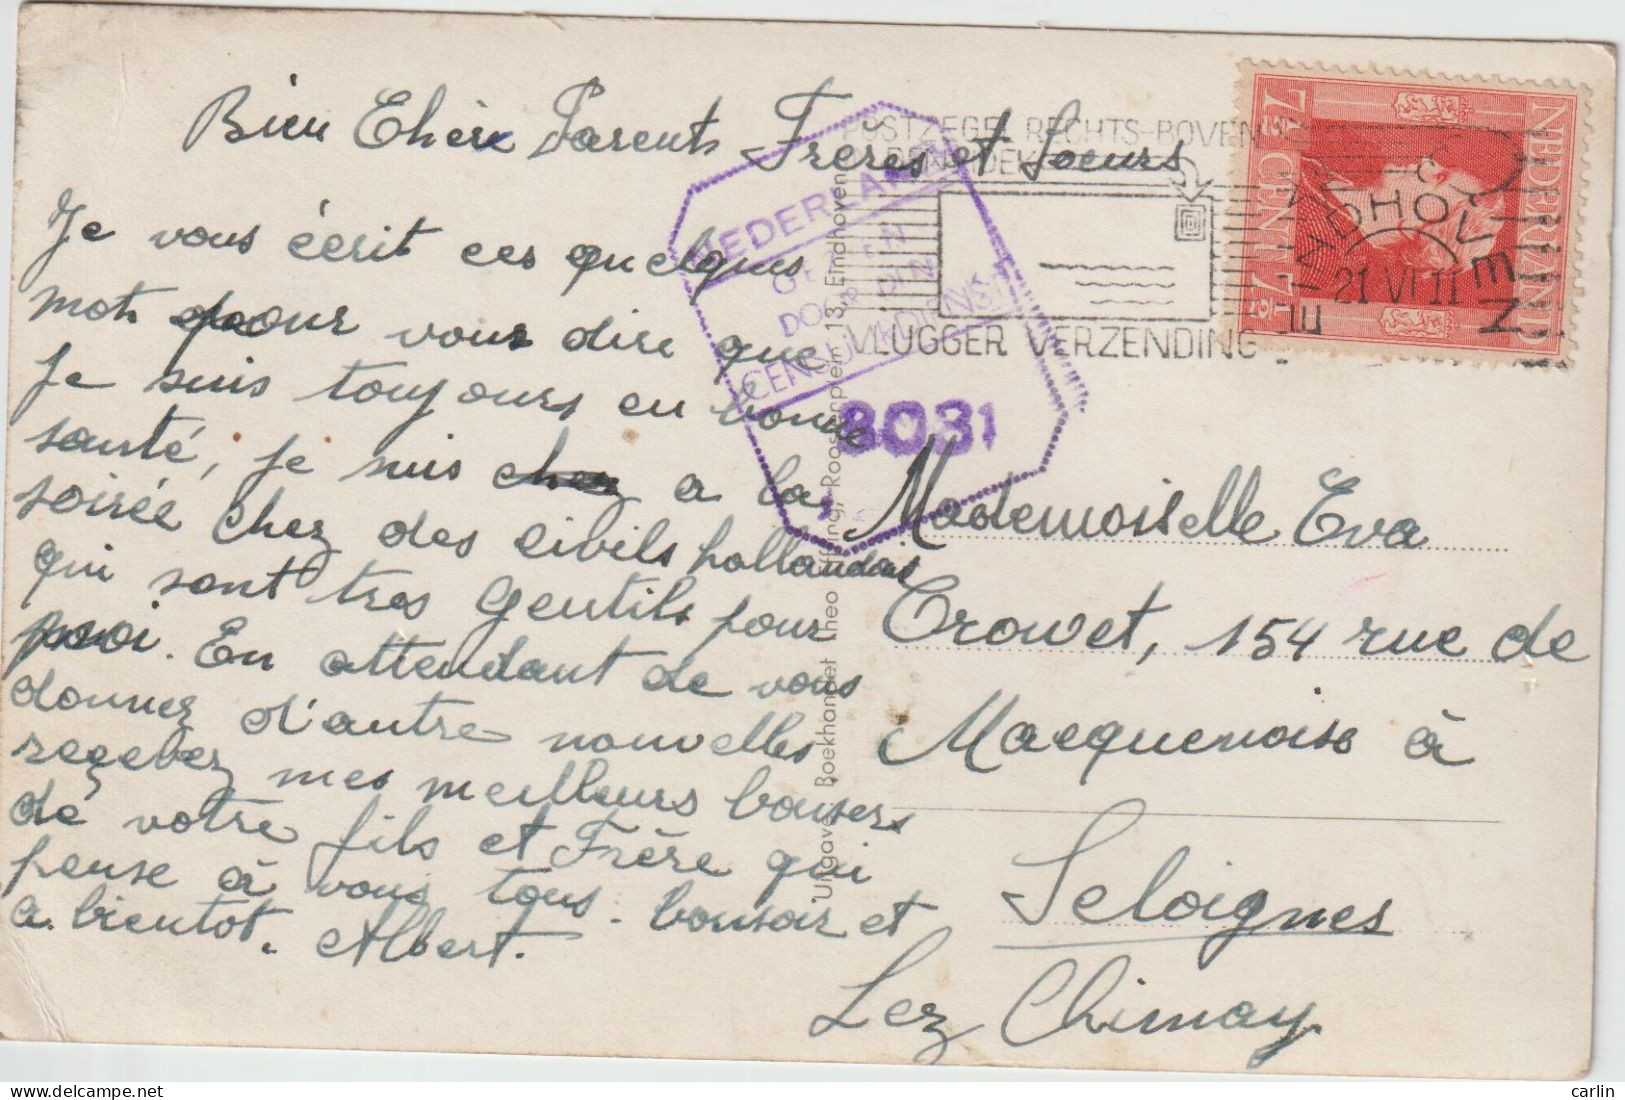 Bien Chère Parents Frères et Soeurs
Je vous écrit ces quelques
mots pour vous dire que
Je suis toujours en bonne
santé, je suis chez a la
soirée chez des civils hollandais
qui sont tres gentils pour
moi. En attendant de vous
donnez d'autre nouvelles
recevez mes meilleurs bousers
de votre fils et Frère qui
pense à vous tous. bonsoir et
a bientot. Albert.
POSTZEGEL RECHTS-BOVEN
VLUGGER VERZENDING
EINDHOVEN
21 VI 11
NEDERLAND
7½ CENT 7½
NEDERLAND
DOOR DIN
CENSUURDIENST
8031
Uitgave: Boekhandel Theo Roosterplein 13, Eindhoven
Mademoiselle Eva
Crowet, 154 rue de
Macquenoise à
Seloignes
Lez Chimay
carlin